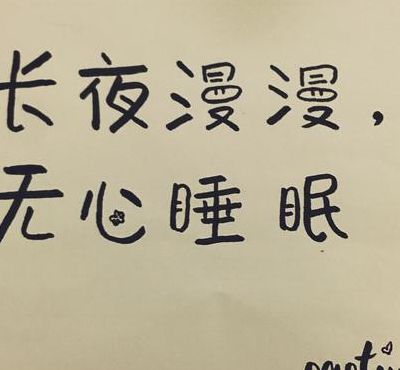 长夜漫漫，
无心睡眠